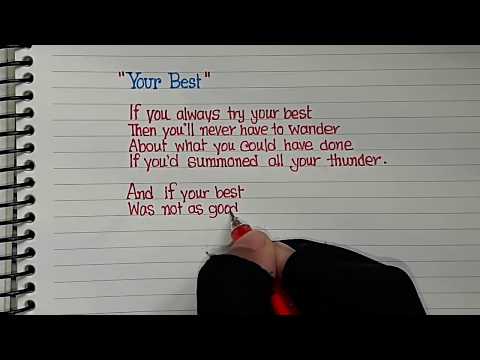 "Your Best"
If you always try your best
Then you'll never have to wander
About what you could have done
If you'd summoned all your thunder.
And if your best
Was not as good